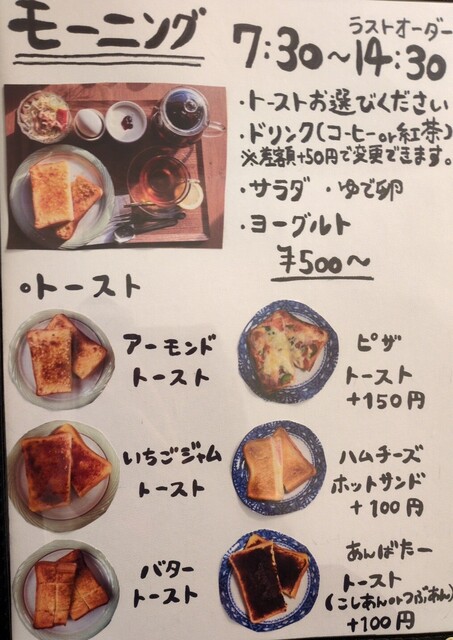 モーニング
ラストオーダー
7:30〜14:30
・トーストお選びください
・ドリンク(コーヒーor紅茶)
※差額+50円で変更できます。
・サラダ ・ゆで卵
・ヨーグルト
¥500〜
○トースト
アーモンド
トースト
ピザ
トースト
+150円
いちごジャム
トースト
ハムチーズ
ホットサンド
+100円
バター
トースト
あんばたー
トースト
(こしあんorつぶあん)
+100円